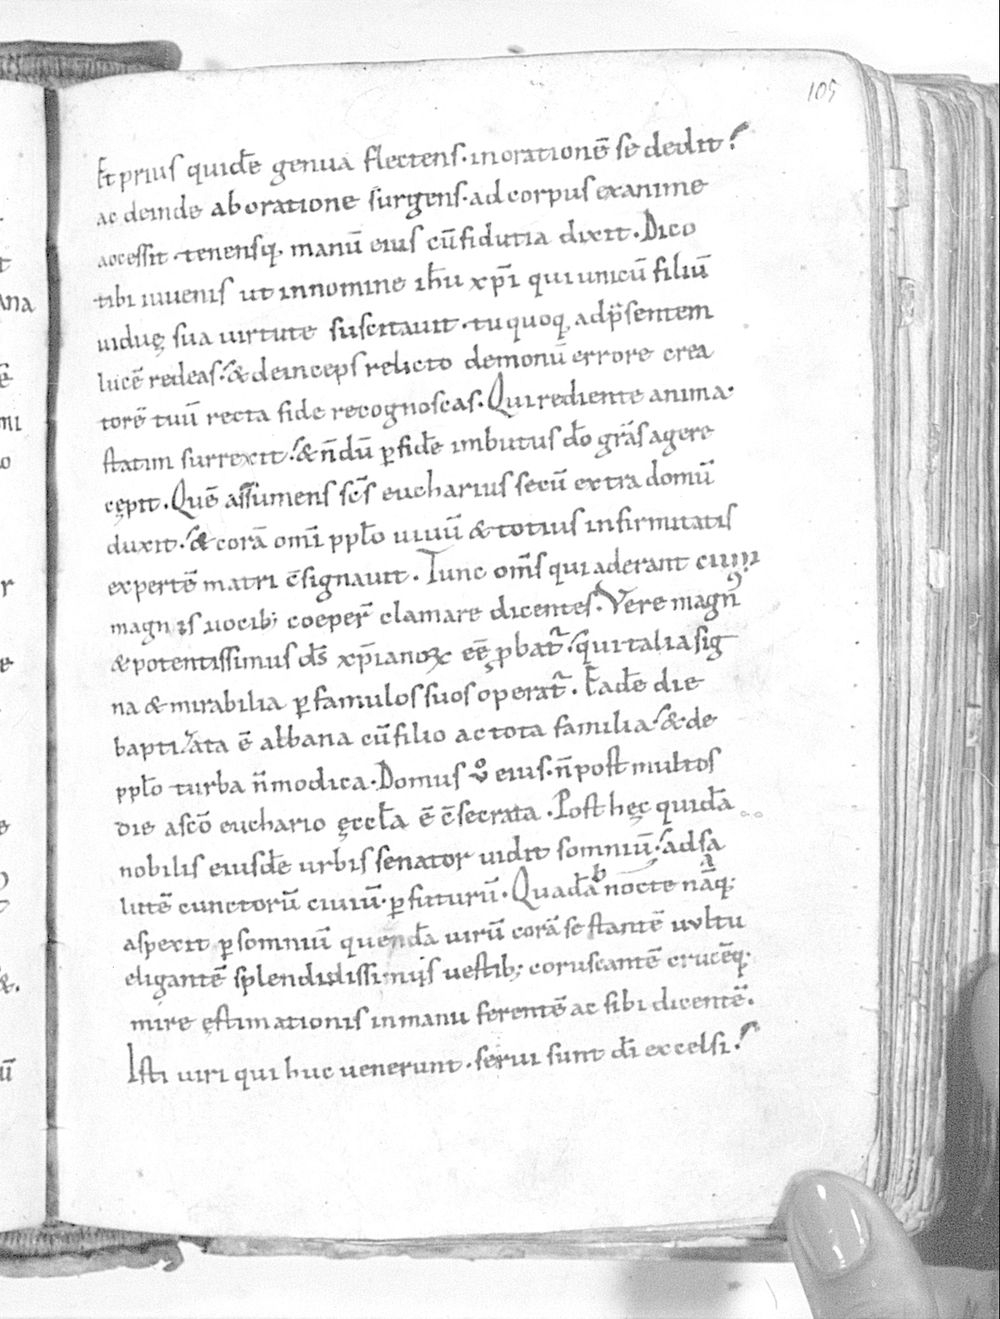 105
Et prius quidē genua flectens · in orationē se dedit ⸵
ac deinde ab oratione surgens · ad corpus exanime
accessit · tenensq; manū eius cū fidutia dixit · Dico
tibi iuuenis ut in nomine ihū xp̄i qui unicū filiū
uiduę sua uirtute suscitauit · tu quoq; ad p̄sentem
lucē redeas ⸵ & deinceps relicto demonū errore crea
torē tuū recta fide recognoscas · Qui rediente anima ·
statim surrexit ⸵ & n̄dū ꝑ fidē imbutus dō grās agere
cępit · Quē assumens sc̄s eucharius secū extra domū
duxit ⸵ & corā omī ppl̄o uiuū & totius infirmitatis
expertē matri c̄signauit · Tunc om̄s qui aderant ciuii
magnis uocib; coeper̄ clamare dicentes · Vere magnꝰ
& potentissimus ds̄ xp̄ianoꝝ eē ꝓbat̄ ⸵ qui talia sig
na & mirabilia ꝑ famulos suos operat̄ · Eadē die
baptizata ē albana cū filio ac tota familia ⸵ & de
ppl̄o turba n̄ modica · Domus v̊ eius · n̄ post multos
die a sc̄o euchario ęccl̄a ē c̄secrata · Post hęc quidā
nobilis eiusdē urbis senator uidit somniū ⸵ ad sa
lutē cunctorū ciuiū · ꝑfuturū · Quadā nocte nāq;
aspexit ꝑ somniū quendā uirū corā se stantē uultu
eligantē splendidissimis uestib; coruscantē crucēq;
mire ęstimationis in manu ferentē ac sibi dicentē ·
Isti uiri qui huc uenerunt · serui sunt dī excelsi ⸵